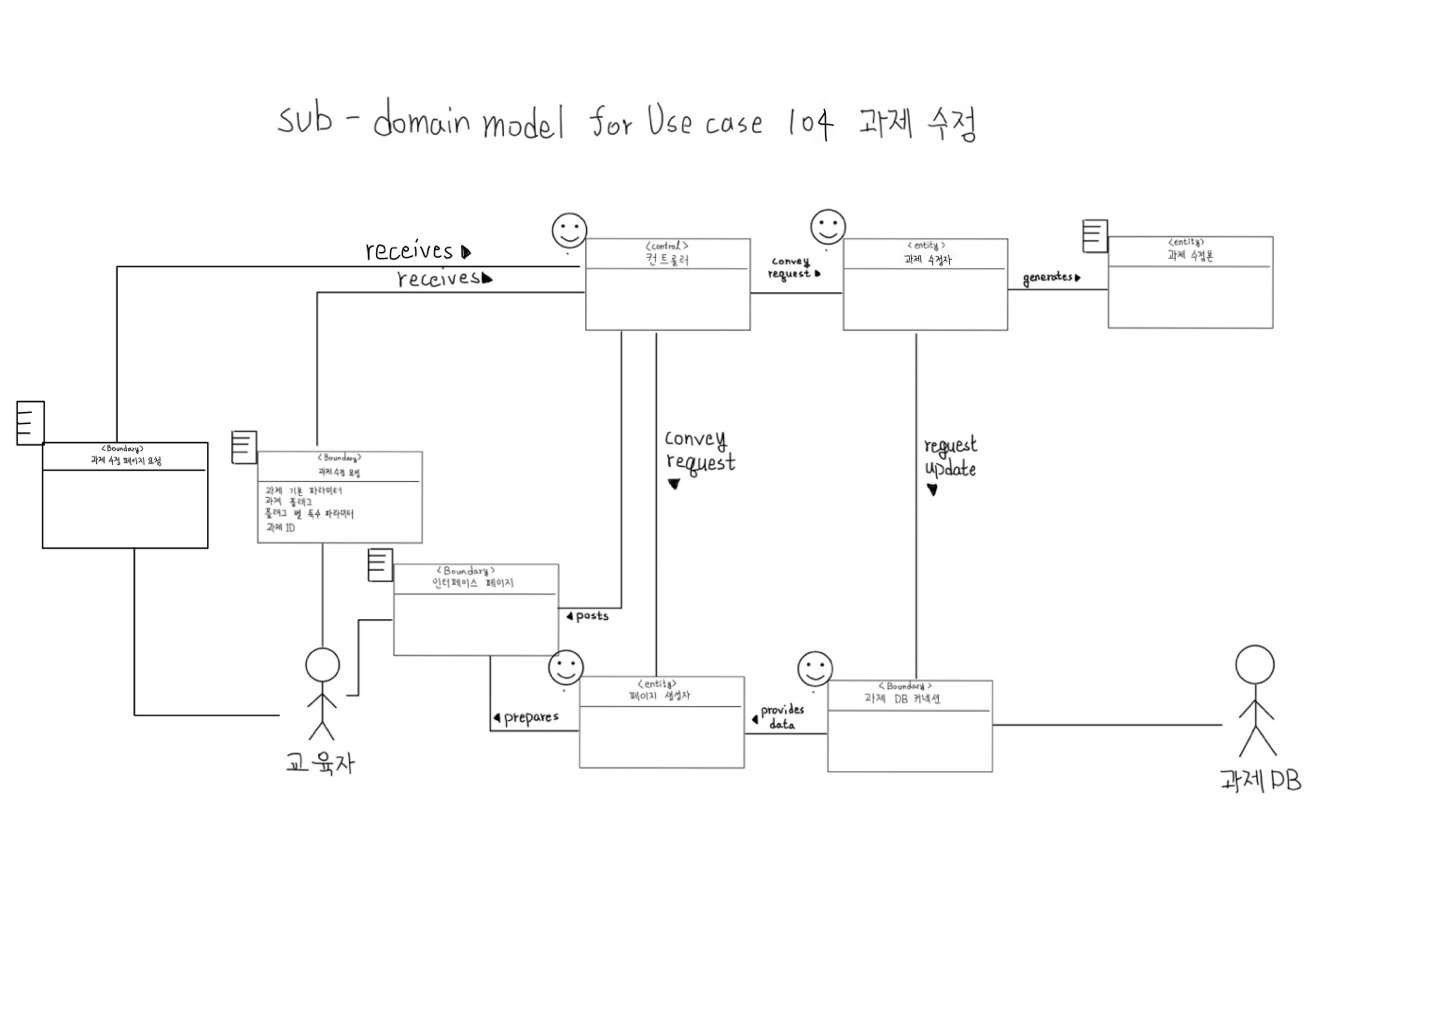 sub - domain model for Use case 104 과제 수정
receives▶
receives▶
<control>
컨트롤러
convey
request▶
<entity>
과제 수정자
generates▶
<entity>
과제 수정본
<Boundary>
과제 수정 페이지 요청
<Boundary>
과제 수정 요청
과제 기본 파라미터
과제 플래그
플래그 별 특수 파라미터
과제 ID
convey
request
▼
request
update
▼
<Boundary>
인터페이스 페이지
◀posts
<entity>
페이지 생성자
◀prepares
<Boundary>
과제 DB 커넥션
◀provides
data
교육자
과제 DB